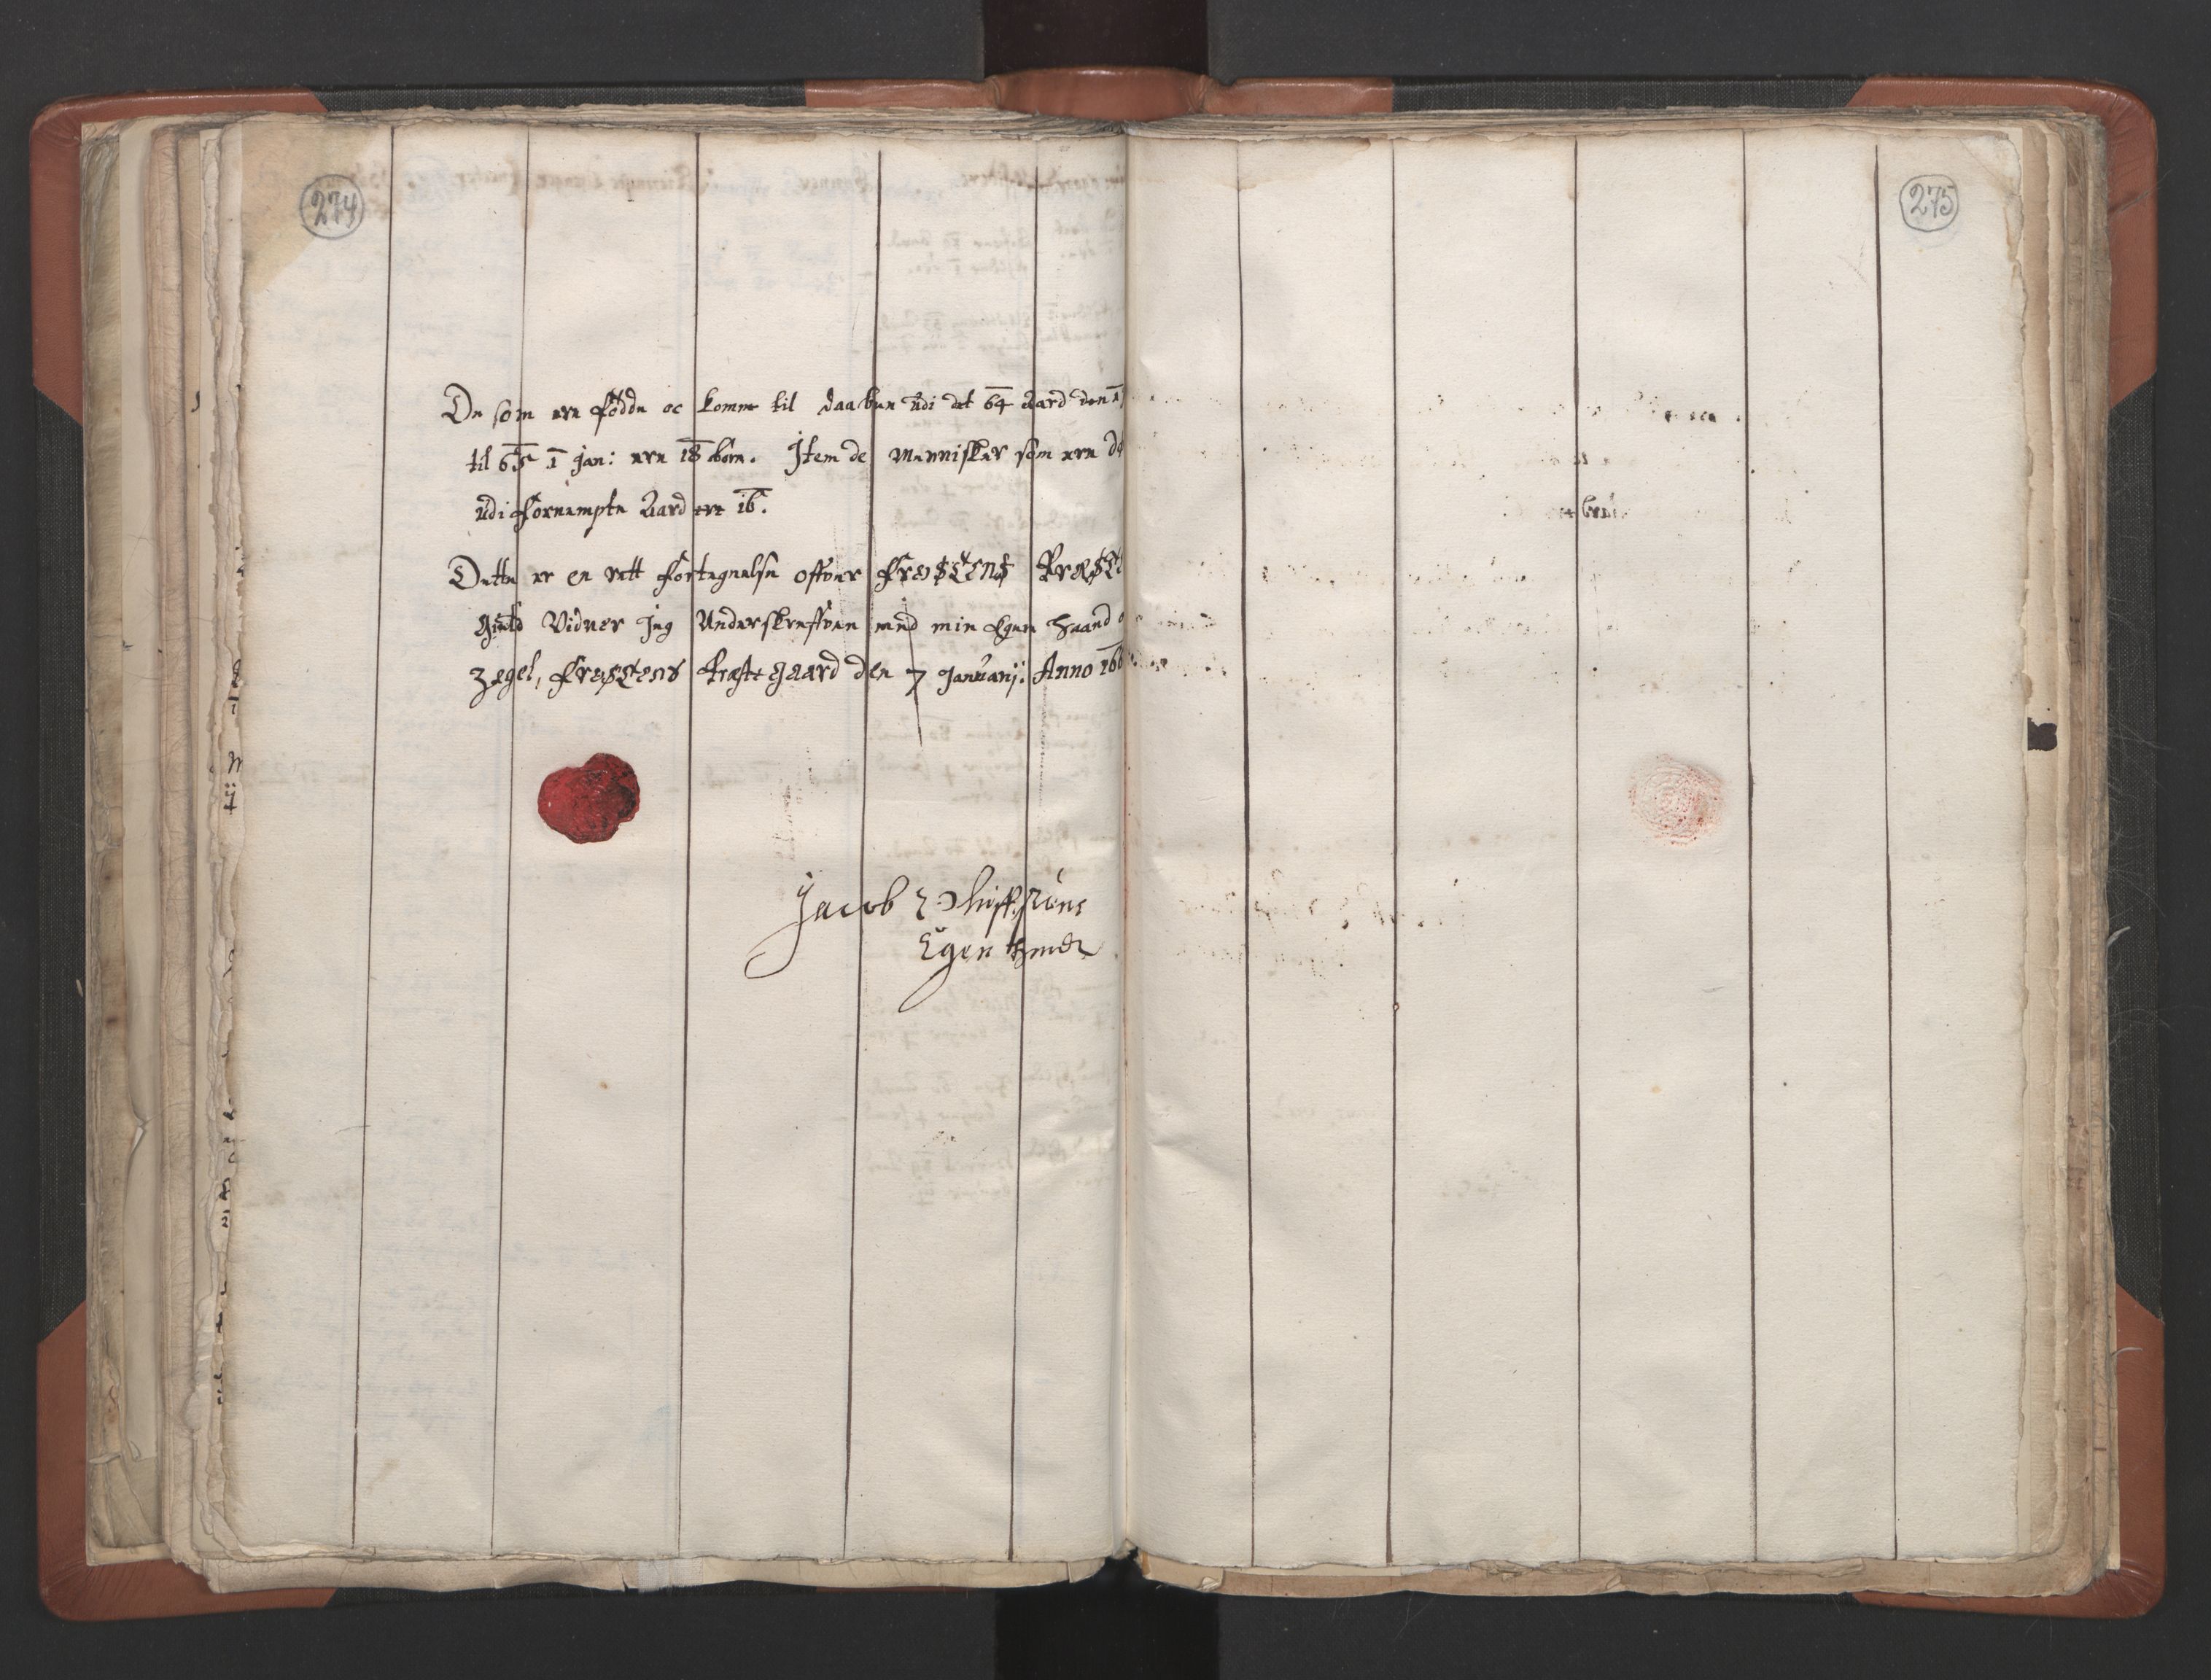 274
275
De som ere fødde oc komne til daaben udi det 64 Aard den 1
til 65 1 Jan: ere 18 børn. Item de Mennisker som ere dø
udi fornempte Aard ere 16.
Dette er en rett fortegnelse offver Frostens Præste
gield Vidner Jeg Underskreffven med min Egen Haand o
Zegel, Frostens Præstegaard den 7 Januarij: Anno 166
Jacob
Egen Haand